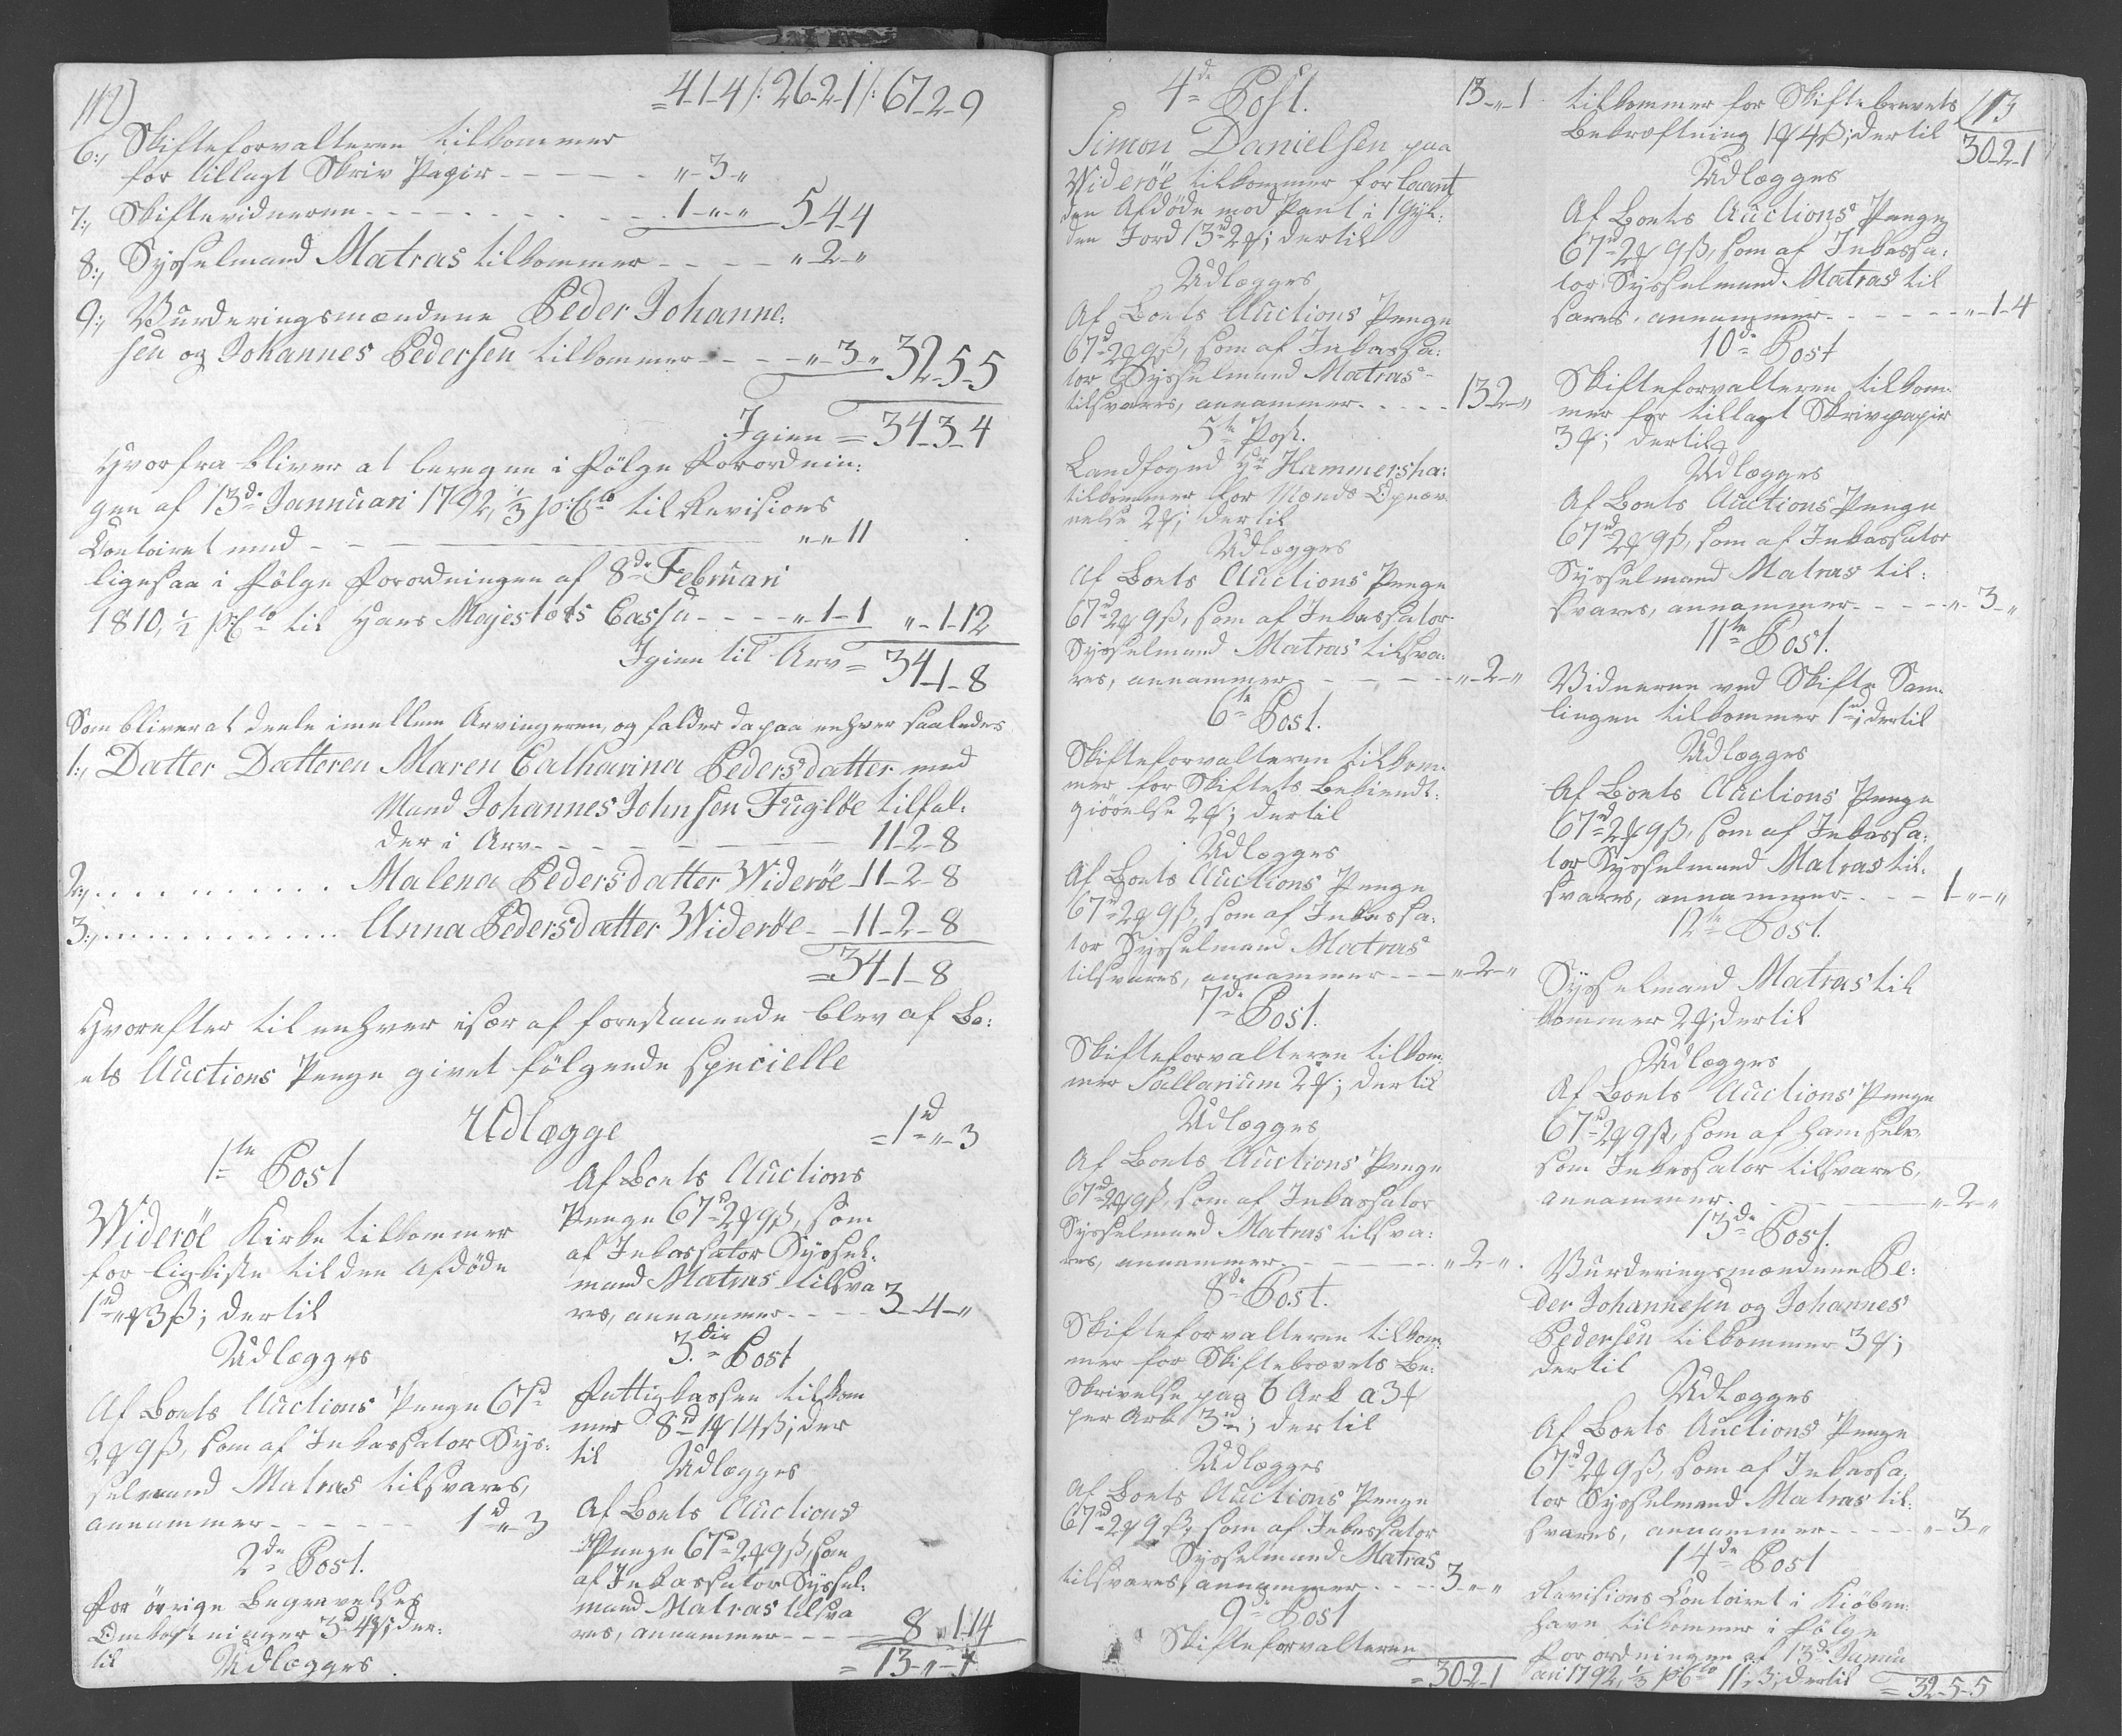 112)
=4-1-4 /: 26-2-1 /: 67-2-9
6:, Skifteforvalteren tilkommer
for tillagt Skriv Papir - - - - - „-3-„
7:, Skiftevidnerne - - - - - - - - 1-„-„ 5-4-4
8:, Sysselmand Matras tilkommer - - - - „-2-„
9:, Vurderingsmændene Peder Johanne:
sen og Johannes Pedersen tilkommer - - - „-3-„ 32-5-5
Igien = 34-3-4
Hvorfra bliver at beregne i Følge Forordnin:
gen af 13de Januari 1792, 1/3 p:Cto til Revisions
Contoiret med - - - „-„-11
ligesaa i Følge Forordningen af 8de Februari
1810, 1/2 p:Cto til Hans Majestæts Cassa - - - - „-1-1 „-1-12
Igien til Arv = 34-1-8
Som bliver at deele imellem Arvingerne, og falder da paa enhver saaledes
1:, Datter Datteren Maren Catharina Pedersdatter med
Mand Johannes Johnsen Fugløe tilfal:
der i Arv - - - - - - - 11-2-8
2:, . . . . . . . . . . . Malena Pedersdatter Widerøe - 11-2-8
3:, . . . . . . . . . . . Anna Pedersdatter Widerøe - - 11-2-8
=34-1-8
Hvorefter til enhver især af forestaaende blev af Bo:
ets Auctions Penge givet følgende specielle
Udlægge
1te Post
Widerøe Kirke tilkommer
for Ligkiste til den Afdøde
1rd „ʄ 3ß; dertil
Udlægges
Af Boets Auctions Penge 67rd
2ʄ 9ß, som af Inkassator Sys:
selmand Matras tilsvares,
annammer - - - - - - 1rd-„-3
2de Post.
For øvrige Begravelses
Omkostninger 3rd 4ʄ; der:
til
Udlægges
=1rd-„-3
Af Boets Auctions
Penge 67rd 2ʄ 9ß, som
af Inkassator Syssel:
mand Matras tilsva
res, annammer - - - 3-4-„
3die Post
Fattigkassen tilkom
mer 8rd 1ʄ 14ß; der
til
Udlægges
Af Boets Auctions
Penge 67rd 2ʄ 9ß, som
af Inkassator Syssel:
mand Matras tilsva
res, annammer - - - 8-1-14
= 13-„-1
4de Post. 13-„-1
Simon Danielsen paa
Widerøe tilkommer for laant
den Afdøde mod Pant i 1 Gyl:
den Jord 13rd 2ʄ; dertil
Udlægges
Af Boets Auctions Penge
67rd 2ʄ 9ß, som af Inkassa:
tor Sysselmand Matras
tilsvares, annammer - - - - 13-2-„
5te Post.
Landfoged Hr Hammersha:
tilkommer for Mænds Opnæv
nelse 2ʄ; dertil
Udlægges
Af Boets Auctions Penge
67rd 2ʄ 9ß, som af Inkassator
Sysselmand Matras tilsva:
res, annammer - - - - - - „-2-„
6te Post.
Skifteforvalteren tilkom:
mer for Skiftets Bekiendt:
giørelse 2ʄ; dertil
Udlægges
Af Boets Auctions Penge
67rd 2ʄ 9ß, som af Inkassa:
tor Sysselmand Matras
tilsvares, annammer - - - „-2-„
7de Post.
Skifteforvalteren tilkom:
mer Sallarium 2ʄ; dertil
Udlægges
Af Boets Auctions Penge
67rd 2ʄ 9ß, som af Inkassator
Sysselmand Matras tilsva:
res, annammer - - - - - - „-2-„
8de Post.
Skifteforvalteren tilkom:
mer for Skiftebrevets Be:
skrivelse paa 6 Ark a 3ʄ
per Ark 3rd; dertil
Udlægges
Af Boets Auctions Penge
67rd 2ʄ 9ß, som af Inkassator
Sysselmand Matras
tilsvares, annammer - - - 3-„-„
9de Post
Skifteforvalteren
= 30-2-1
113
tilkommer for Skiftebrevets
Bekræftning 1ʄ 4ß; dertil 30-2-1
Udlægges
Af Boets Auctions Penge
67rd 2ʄ 9ß, som af Inkassa:
tor Sysselmand Matras til
svares, annammer - - - - - „-1-4
10de Post
Skifteforvalteren tilkom:
mer for tillagt Skrivpapir
3ʄ; dertil
Udlægges
Af Boets Auctions Penge
67rd 2ʄ 9ß, som af Inkassator
Sysselmand Matras til:
svares, annammer - - - - „-3-„
11te Post.
Vidnerne ved Skifte Sam:
lingen tilkommer 1rd; dertil
Udlægges
Af Boets Auctions Penge
67rd 2ʄ 9ß, som af Inkassa:
tor Sysselmand Matras til:
svares, annammer - - - - 1-„-„
12te Post.
Sysselmand Matras til
kommer 2ʄ; dertil
Udlægges
Af Boets Auctions Penge
67rd 2ʄ 9ß, som af ham selv,
som Inkassator tilsvares,
annammer - - - „-2-„
13de Post.
Vurderingsmændene Pe:
der Johannesen og Johannes
Pedersen tilkommer 3ʄ;
dertil
Udlægges
Af Boets Auctions Penge
67rd 2ʄ 9ß, som af Inkassa,
tor Sysselmand Matras til:
svares, annammer - - - - „-3-„
14de Post
Revisions Contoiret i Kiøben:
havn tilkommer i Følge
Forordningen af 13de Janu
ari 1792, 1/3 p:Cto 11ß; dertil = 32-5-5